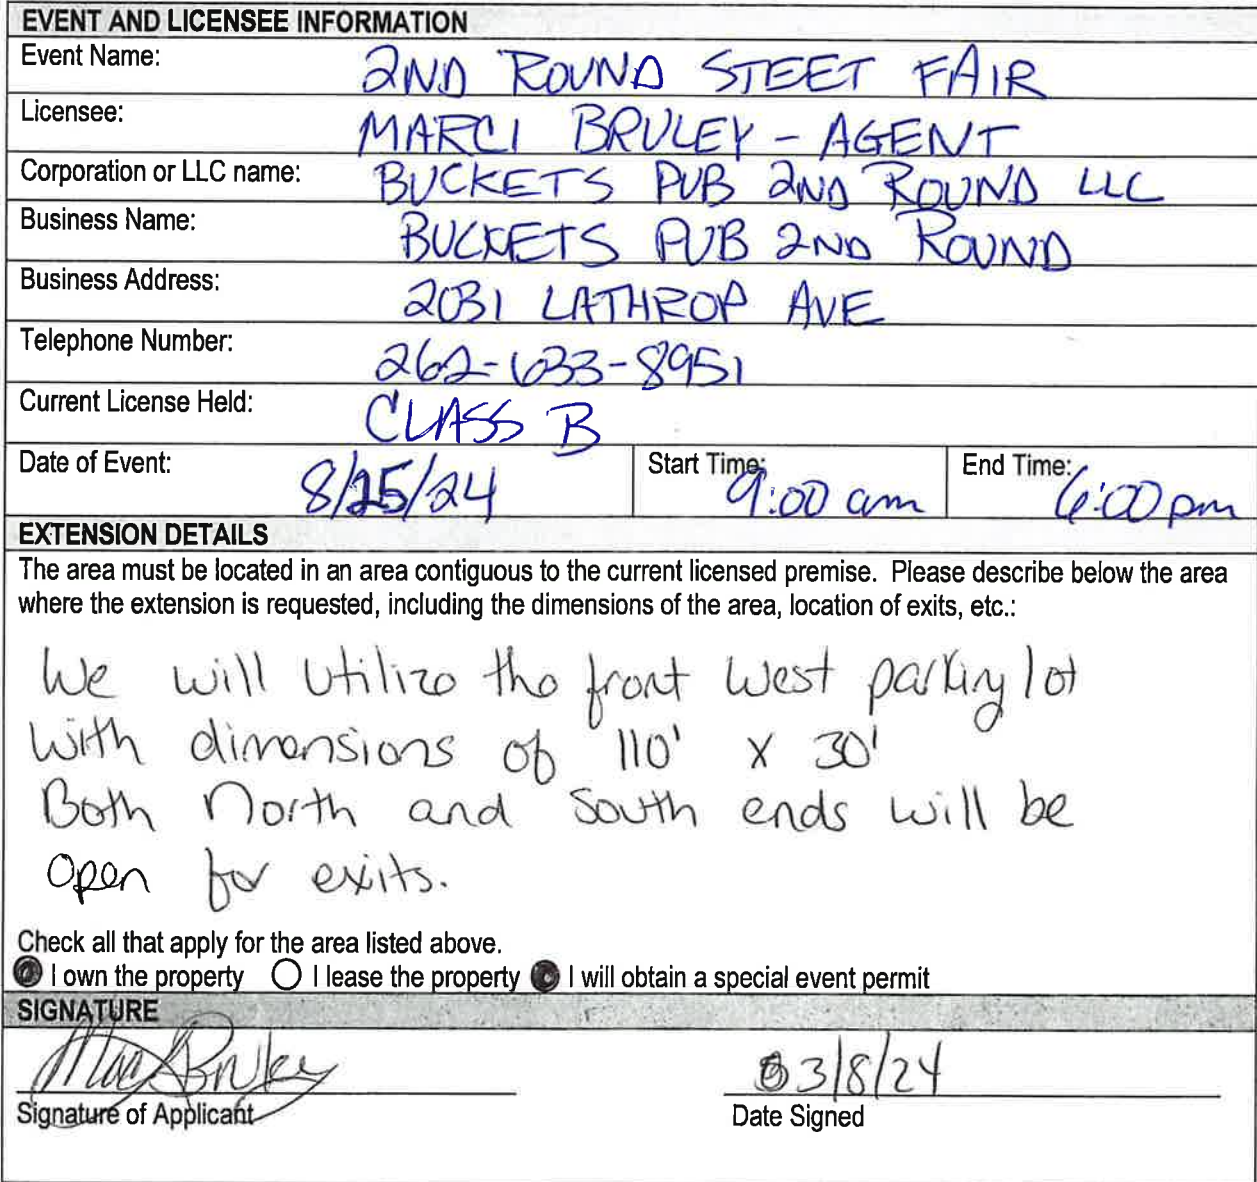 EVENT AND LICENSEE INFORMATION
Event Name: 2ND ROUND STEET FAIR
Licensee: MARCI BRULEY - AGENT
Corporation or LLC name: BUCKETS PUB 2ND ROUND LLC
Business Name: BUCKETS PUB 2ND ROUND
Business Address: 2031 LATHROP AVE
Telephone Number: 262-633-8951
Current License Held: CLASS B
Date of Event: 8/25/24 Start Time: 9:00 am End Time: 6:00 pm
EXTENSION DETAILS
The area must be located in an area contiguous to the current licensed premise. Please describe below the area
where the extension is requested, including the dimensions of the area, location of exits, etc.:
We will utilize the front West parking lot
with dimensions of 110' x 30'
Both North and South ends will be
open for exits.
Check all that apply for the area listed above.
I own the property I lease the property I will obtain a special event permit
SIGNATURE
Marci Bruley 3/8/24
Signature of Applicant Date Signed